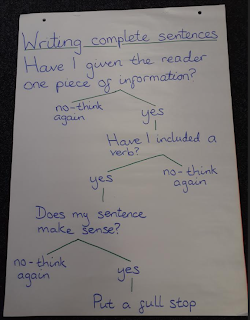 Writing complete sentences
Have I given the reader
one piece of information?
no-think
again
yes
Have I included a
verb?
yes
no-think
again
Does my sentence
make sense?
no-think
again
yes
Put a full stop